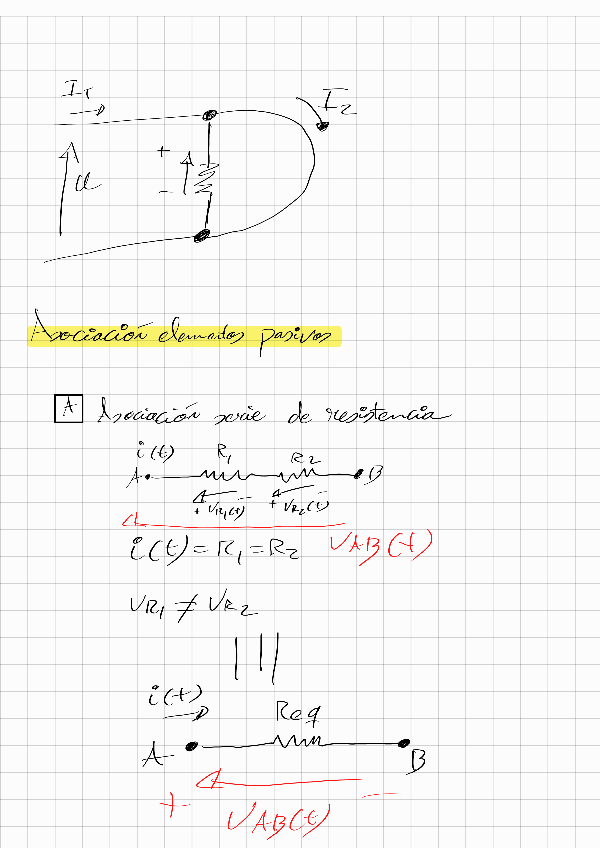 I1
I2
+
U
-
Asociación elementos pasivos
A Asociación serie de resistencia
i(t) R1 R2
A B
+ VR1(t) - + VR2(t) -
i(t) = R1 = R2 VAB(t)
VR1 ≠ VR2
|||
i(t) Req
A B
+ VAB(t) -